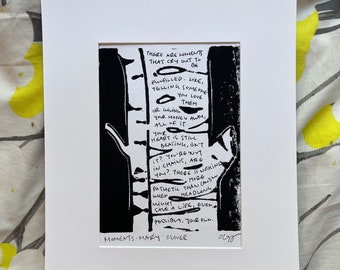 THERE ARE MOMENTS
THAT CRY OUT TO
BE
FULFILLED. LIKE,
TELLING SOMEONE
YOU LOVE
THEM
OR GIVING
YOUR MONEY AWAY,
ALL OF IT.
YOUR
HEART IS STILL
BEATING, ISN'T
IT? YOU'RE NOT
IN CHAINS, ARE
YOU? THERE IS NOTHING
MORE
PATHETIC THAN CAUTION
WHEN HEADLONG
MIGHT
SAVE A LIFE, EVEN,
POSSIBLY, YOUR OWN.
MOMENTS - MARY OLIVER